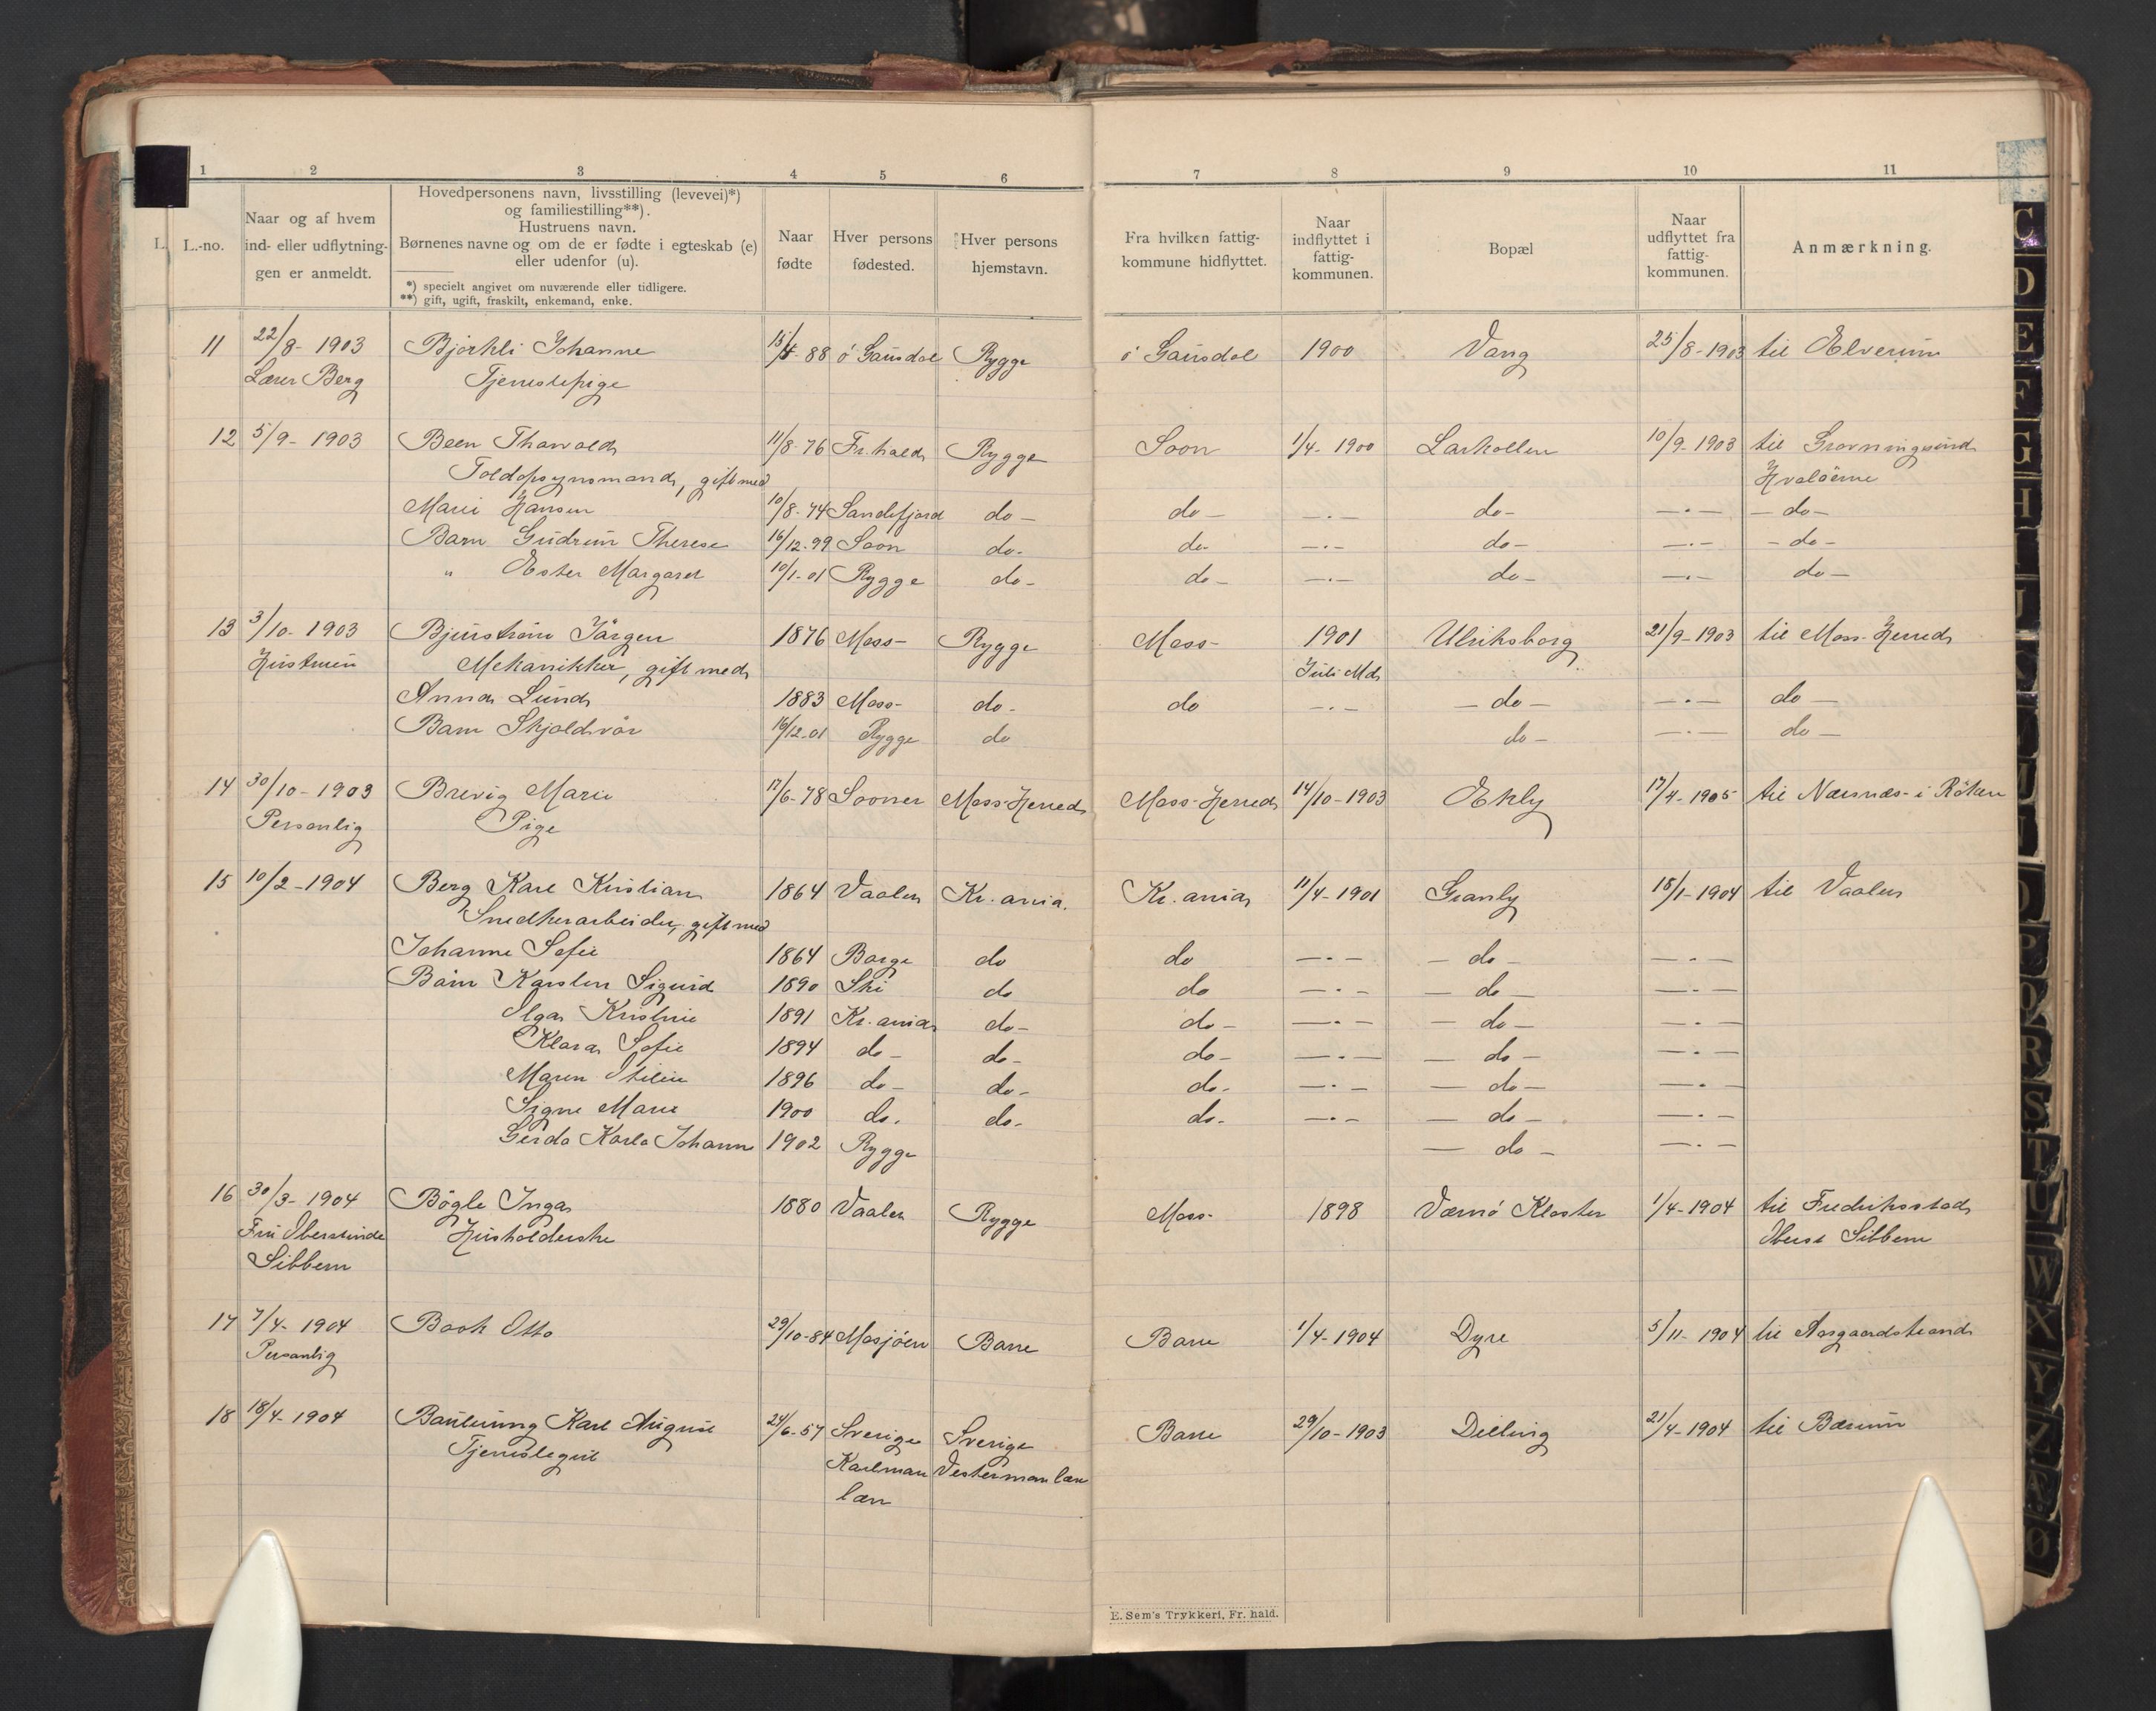 1 2 3 4 5 6 7 8 9 10 11
L. L.-no.
Naar og af hvem
ind- eller udflytning-
gen er anmeldt.
Hovedpersonens navn, livsstilling (levevei)*)
og familiestilling**).
Hustruens navn.
Børnenes navne og om de er fødte i egteskab (e)
eller udenfor (u).
*) specielt angivet om nuværende eller tidligere.
**) gift, ugift, fraskilt, enkemand, enke.
Naar
fødte
Hver persons
fødested.
Hver persons
hjemstavn.
Fra hvilken fattig-
kommune hidflyttet.
Naar
indflyttet i
fattig-
kommunen.
Bopæl
Naar
udflyttet fra
fattig-
kommunen.
Anmærkning.
11 22/8- 1903 Bjørkli Johanne 88 ö Gausdal Rygge ö Gausdal 1900 Vang 25/8-1903 til Elverum
Lærer Berg Tjenestepige
12 5/9- 1903 Been Thorvald 11/8-76 Fr.hald Rygge Soon 1/4-1900 Larkollen 10/9-1903 til Gravningsund
Toldopsynsmand, gift med Hvaløerne
Marie Hansen 10/8-74 Sandefjord do - do - -.- do- -.- - do -
Barn Gudrun Therese 16/12-99 Soon do- do- -.- do- -.- - do -
" Ester Margaret 10/1-01 Rygge do- do- -.- do- -.- do-
13 3/10-1903 Bjurstrøm Jørgen 1876 Moss- Rygge Moss- 1901 Ulriksborg 21/9-1903 til Moss-Herred
Hustruen Mekanikker, gift med Juli Md
Anna Lund 1883 Moss- do- do -.- - do - -.- do -
Barn Skjoldvår 16/12-01 Rygge do do- -.- do -
14 30/10-1903 Brevig Marie 17/6-78 Sooner Moss-Herred Moss-Herred 14/10-1903 Ekly 17/4-1905 til Nærsnæs- i Röken
Personlig Pige
15 10/2-1904 Berg Karl Kristian 1864 Vaaler Kr.ania. Kr.ania 11/4-1901 Granly 18/1-1904 til Vaaler
Snedkerarbeider, gift med
Johanne Sofie 1864 Borge do do -.- - do - -.-
Børn Karsten Sigurd 1890 Ski do do -.- - do - -.-
Olga Kristine 1891 Kr.ania do- do- -.- - do - -.-
Klara Sofie 1894 do- do- do- -.- - do - -.-
Maren Otilie 1896 do- do- do- -.- - do - -.-
Signe Marie 1900 do. do- do- -.- - do - -.-
Gerda Karla Johanne 1902 Rygge - do - -.-
16 30/3-1904 Bögle Inga 1880 Vaaler Rygge Moss- 1898 Værnö Kloster 1/4-1904 til Fredriksstad
Fru Oberstinde Husholderske Oberst Sibbern
Sibbern
17 7/4-1904 Book Otto 29/10-84 Mosjöen Borre Borre 1/4-1904 Dyre 5/11-1904 til Aasgaardstrand
Personlig
18 18/4-1904 Karl August 24/6-57 Sverige Sverige Borre 29/10-1903 Dilling 21/4-1904 til Bærum
Tjenestegut Karlman Vesterman læn
læn
E. Sem's Trykkeri, Fr. hald.
C
D
E
F
G
H
I
J
O
P
Q
R
S
T
U
W
X
Y
Z
Æ
Ø